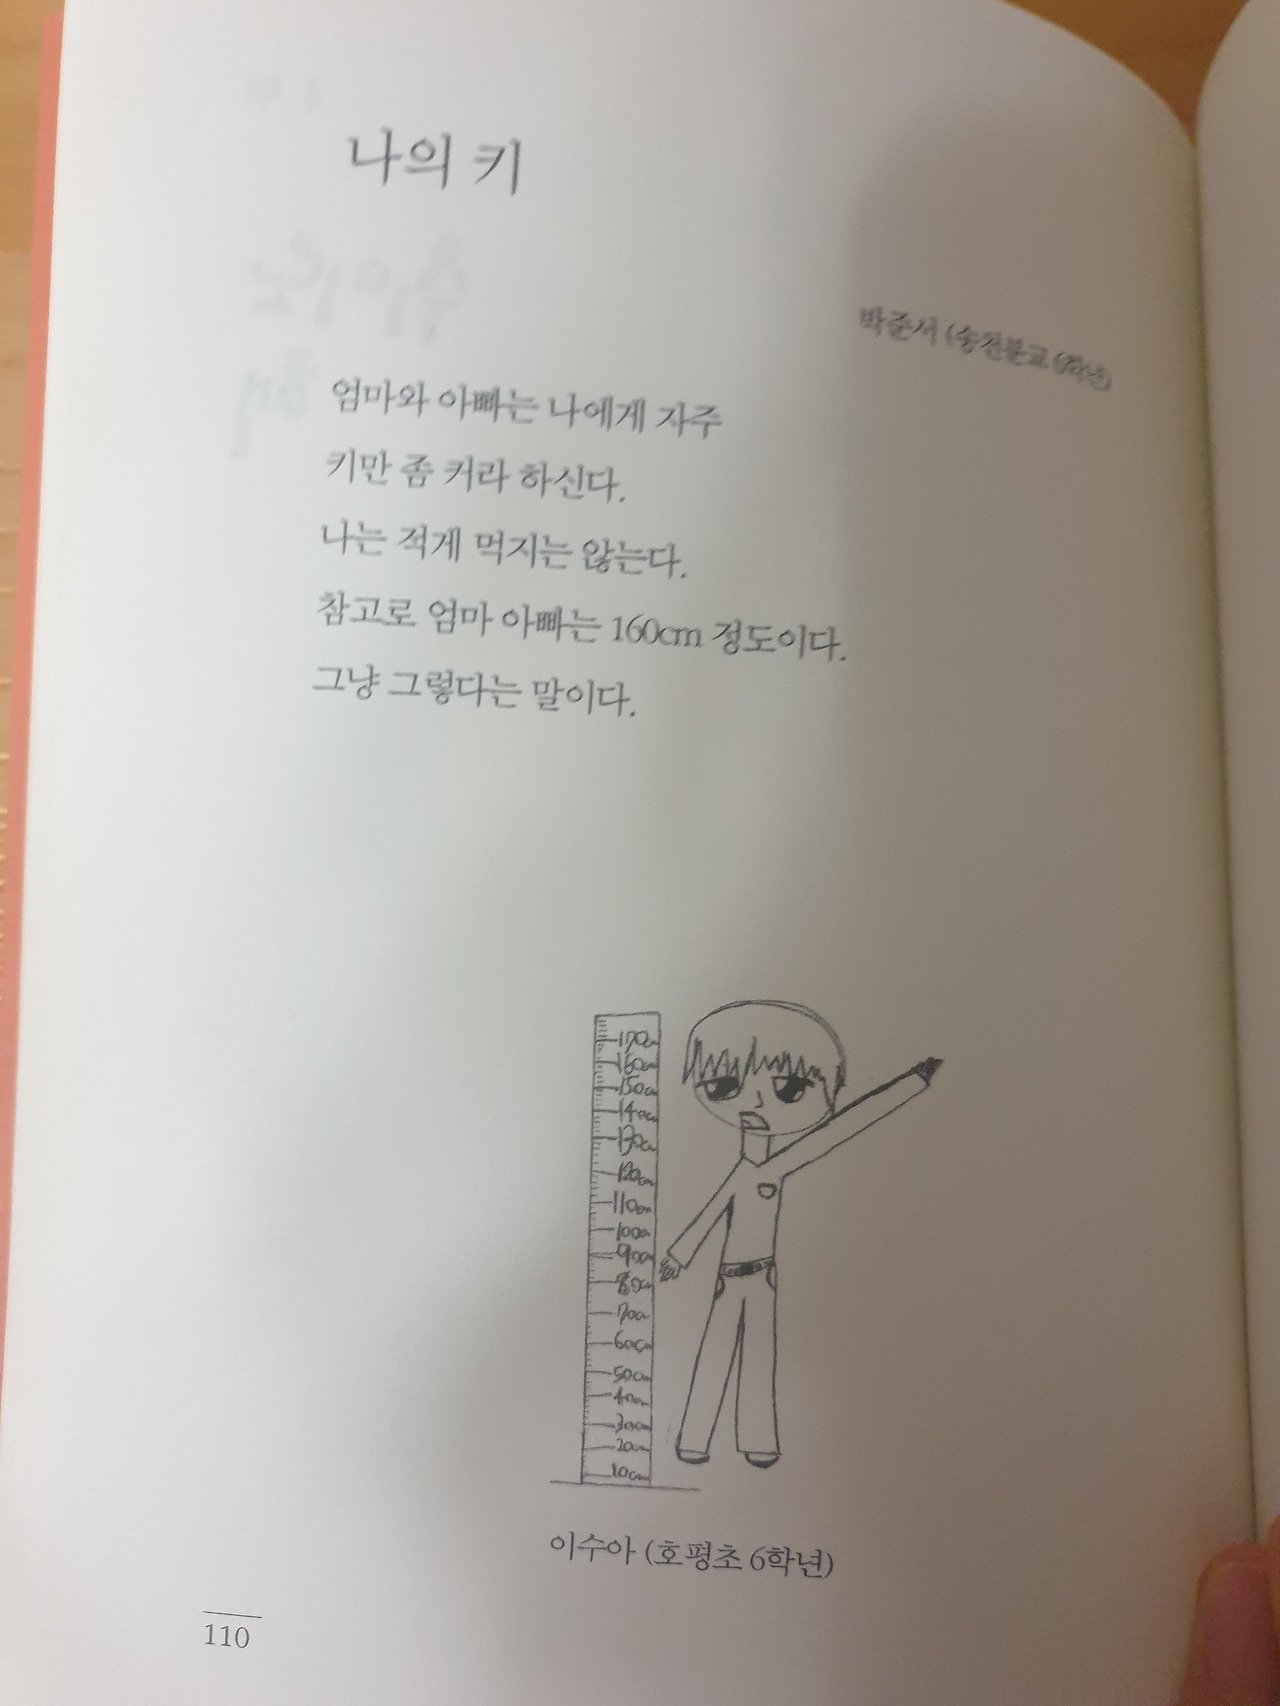 나의 키
박준서 (송천분교 6학년)
엄마와 아빠는 나에게 자주
키만 좀 커라 하신다.
나는 적게 먹지는 않는다.
참고로 엄마 아빠는 160cm 정도이다.
그냥 그렇다는 말이다.
170cm
160cm
150cm
140cm
130cm
120cm
110cm
100cm
90cm
80cm
70cm
60cm
50cm
40cm
30cm
20cm
10cm
이수아 (호평초 6학년)
110